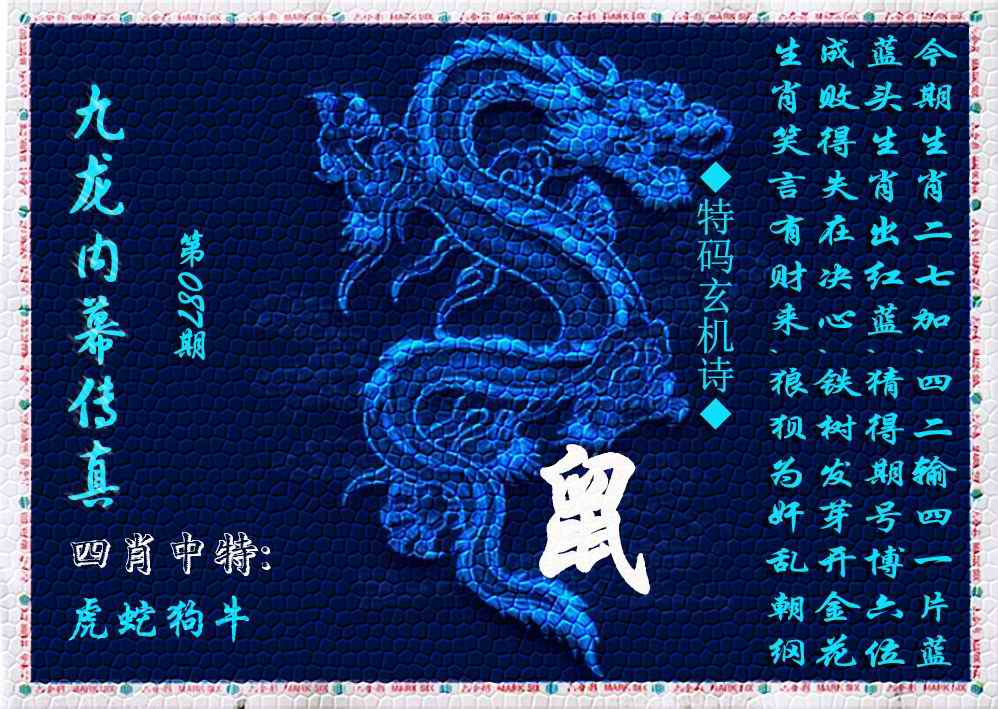 九龙内幕传真
第087期
四肖中特:
虎蛇狗牛
鼠
◆特码玄机诗◆
今期生肖二七加、四二输四一片蓝
蓝头生肖出红蓝、猜得期号博六位
成败得失在决心、铁树发芽开金花
生肖笑言有财来、狼狈为奸乱朝纲